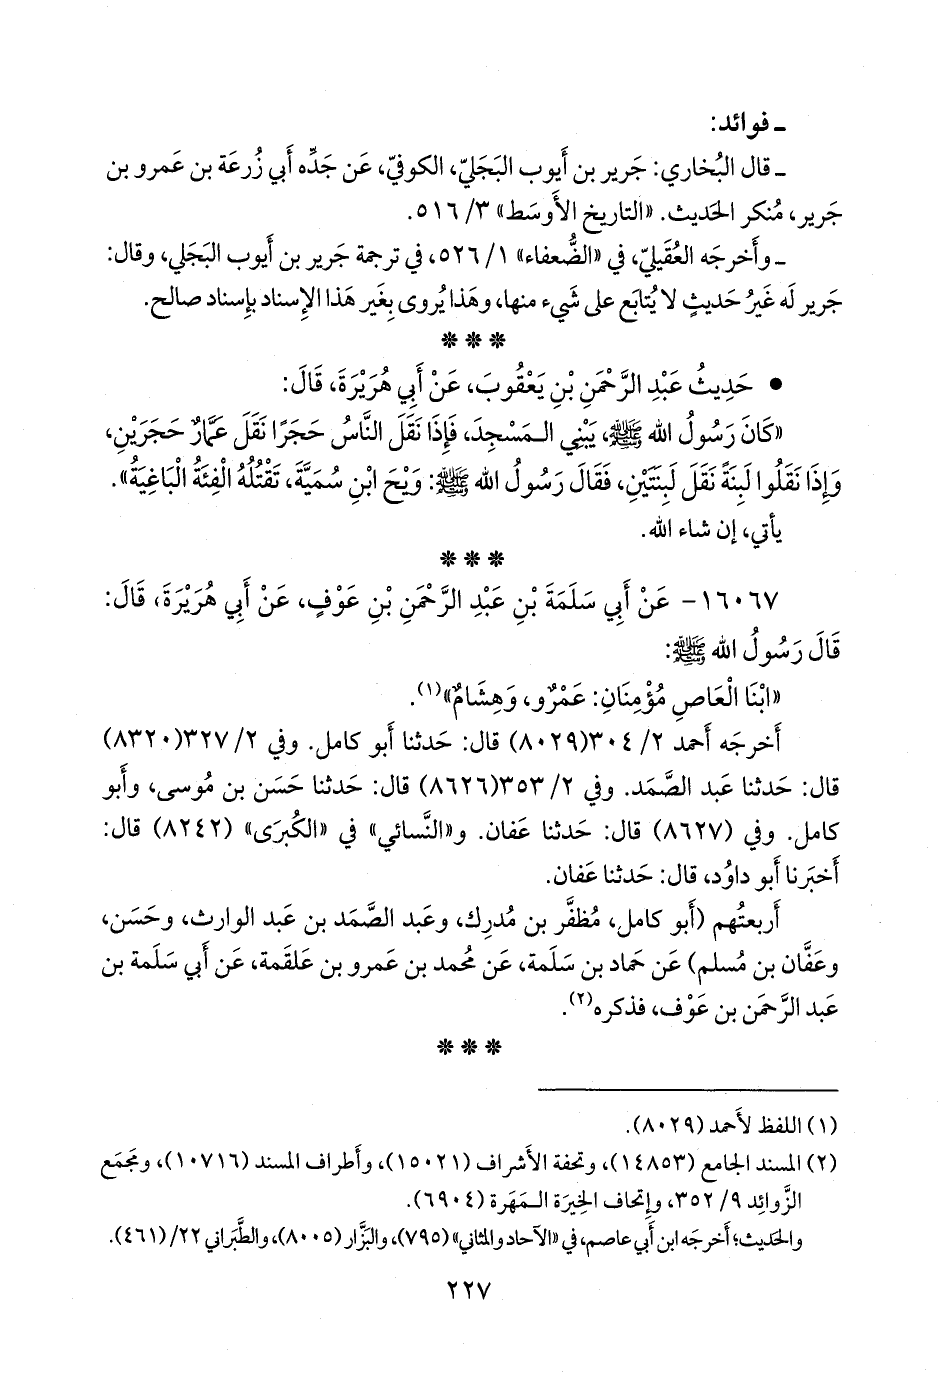 ـ فوائد:
ـ قال البُخاري: جَرير بن أَيوب البَجَليّ، الكوفيّ، عَن جَدِّه أَبي زُرعَة بن عَمرو بن
جَرير، مُنكر الحَديث. «التاريخ الأَوسَط» ٣/ ٥١٦.
ـ وأَخرجَه العُقَيليّ، في «الضُّعفاء» ١/ ٥٢٦، في ترجمة جَرير بن أَيوب البَجَلي، وقال:
جَرير لَه غَيرُ حَديثٍ لا يُتابَع على شَيء منها، وهَذا يُروى بِغَير هَذا الإِسناد بإِسناد صالح.
* * *
• حَدِيثُ عَبْدِ الرَّحْمَنِ بْنِ يَعْقُوبَ، عَنْ أَبِي هُرَيْرَةَ، قَالَ:
«كَانَ رَسُولُ الله ﷺ، يَبْنِي الْمَسْجِدَ، فَإِذَا نَقَلَ النَّاسُ حَجَرًا نَقَلَ عَمَّارٌ حَجَرَيْنِ،
وَإِذَا نَقَلُوا لَبِنَةً نَقَلَ لَبِنَتَيْنِ، فَقَالَ رَسُولُ الله ﷺ: وَيْحَ ابْنِ سُمَيَّةَ، تَقْتُلُهُ الْفِئَةُ الْبَاغِيَةُ».
يأتي، إن شاء الله.
* * *
١٦٠٦٧- عَنْ أَبِي سَلَمَةَ بْنِ عَبْدِ الرَّحْمَنِ بْنِ عَوْفٍ، عَنْ أَبِي هُرَيْرَةَ، قَالَ:
قَالَ رَسُولُ الله ﷺ:
«ابْنَا الْعَاصِ مُؤْمِنَانِ: عَمْرٌو، وَهِشَامٌ»(١).
أَخرجَه أَحمد ٢/ ٣٠٤(٨٠٢٩) قال: حَدثنا أَبو كامل. وفي ٢/ ٣٢٧(٨٣٢٠)
قال: حَدثنا عَبد الصَّمَد. وفي ٢/ ٣٥٣(٨٦٢٦) قال: حَدثنا حَسَن بن مُوسى، وأَبو
كامل. وفي (٨٦٢٧) قال: حَدثنا عَفان. و«النَّسائي» في «الكُبرَى» (٨٢٤٢) قال:
أَخبَرنا أَبو داوُد، قال: حَدثنا عَفان.
أَربعتُهم (أَبو كامل، مُظفَّر بن مُدرِك، وعَبد الصَّمَد بن عَبد الوارث، وحَسَن،
وعَفَّان بن مُسلم) عَن حَماد بن سَلَمة، عَن مُحمد بن عَمرو بن عَلقَمة، عَن أَبي سَلَمة بن
عَبد الرَّحمَن بن عَوْف، فذكره(٢).
* * *
(١) اللفظ لأَحمد (٨٠٢٩).
(٢) المسند الجامع (١٤٨٥٣)، وتحفة الأَشراف (١٥٠٢١)، وأَطراف المسند (١٠٧١٦)، ومَجمَع
الزَّوائِد ٩/ ٣٥٢، وإِتحاف الخِيرَة الـمَهَرة (٦٩٠٤).
والحَديث؛ أَخرجَه ابن أَبي عاصم، في «الآحاد والمثاني» (٧٩٥)، والبَزَّار (٨٠٠٥)، والطَّبَراني ٢٢/ (٤٦١).
٢٢٧